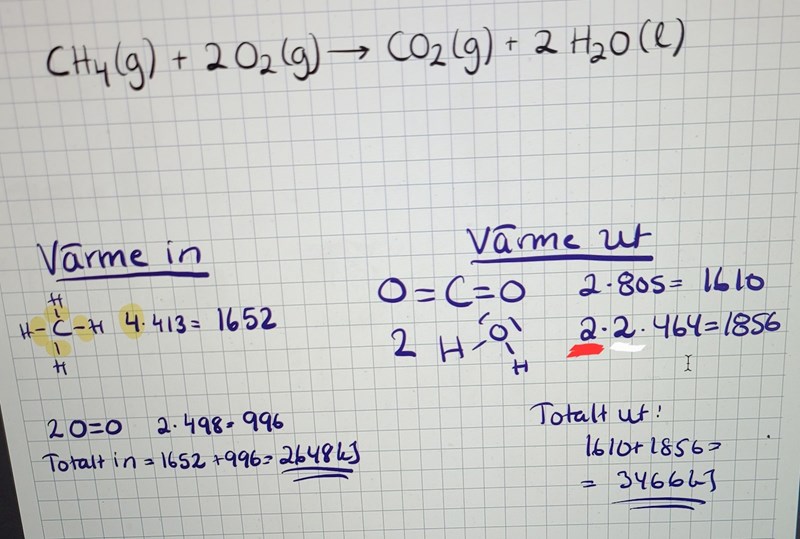 CH4(g) + 2O2(g) → CO2(g) + 2 H2O(l)
Värme in
H
H-C-H 4·413= 1652
H
2O=O 2·498=996
Totalt in = 1652 +996= 2648kJ
Värme ut
O=C=O 2·805= 1610
2 H-O 2·2·464=1856
H
Totalt ut:
1610+1856=
= 3466kJ